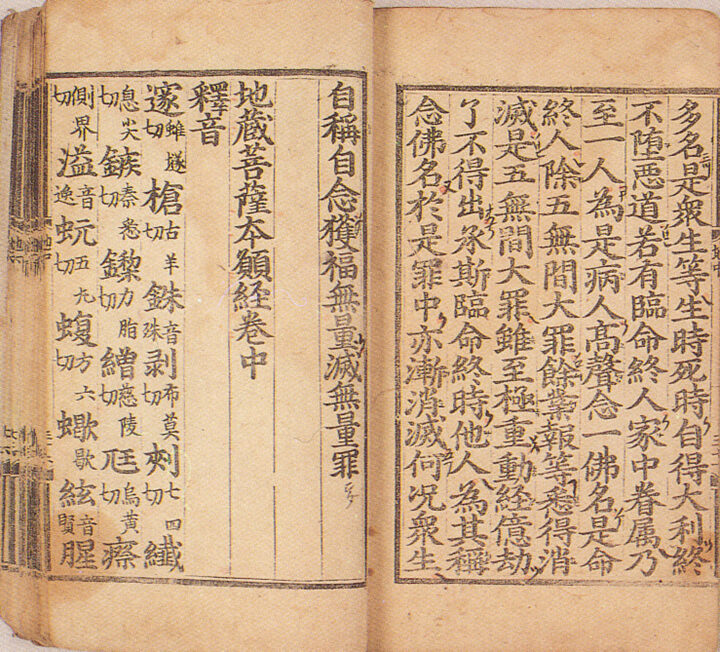 多名是衆生等生時死時自得大利終
不堕悪道若有臨命終人家中眷属乃
至一人為是病人髙聲念一佛名是命
終人除五無間大罪餘業報等悉得消
滅是五無間大罪雖至極重動経億劫
了不得出承斯臨命終時他人為其稱
念佛名於是罪中亦漸消滅何况衆生
自稱自念獲福無量滅無量罪
地蔵菩薩本願経卷中
釋音
邃切槍古羊切銖音殊剥布莫切刾七四切纎
息尖切鏃秦悉切鑗力脂切繒慈陵切尫烏黄切瘵
側界切溢音逸蚖五丸切蝮方六切蠍歇絃音賢腥